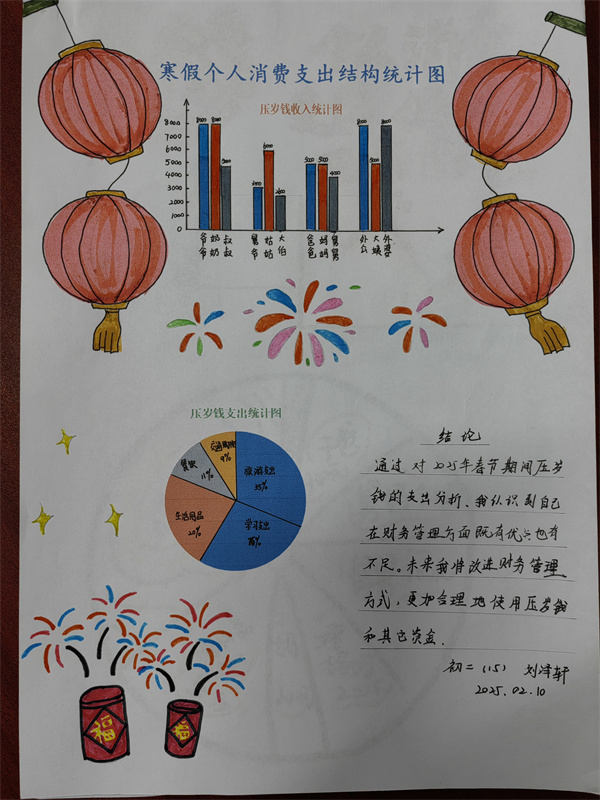 寒假个人消费支出结构统计图
压岁钱收入统计图
8000
7000
6000
5000
4000
3000
2000
1000
0
8000 8000 5000 6000 5000 5000 4000 8000 5000 8000
爷爷 奶奶 叔叔 舅爷 姑姑 大伯 爸爸 妈妈 舅舅 外公 大姨 外婆
压岁钱支出统计图
交通购物
9%
餐饮
11%
旅游支出
35%
生活用品
20%
学习支出
结论
通过对2025年春节期间压岁
钱的支出分析、我认识到自己
在财务管理方面既有优点也有
不足。未来我将改进财务管理
方式，更加合理地使用压岁钱
和其它资金.
初二（15） 刘泽轩
2025.02.10
福
福